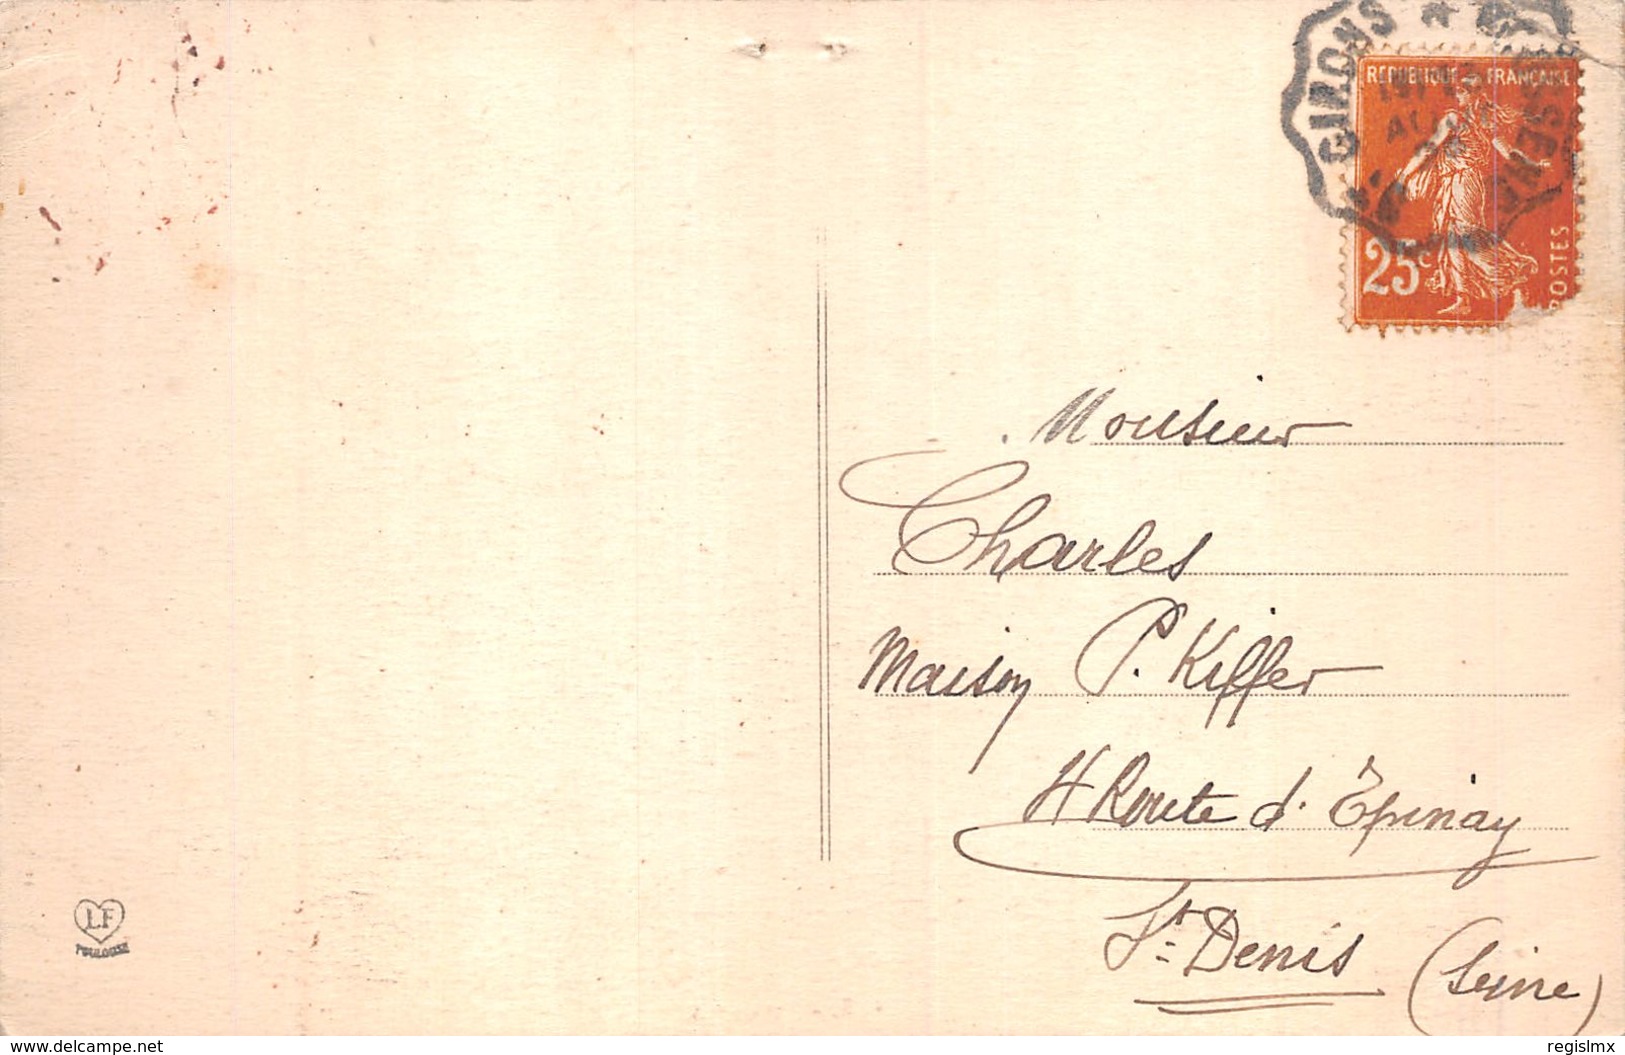 ST GIRONS * BOUSSENS
REPUBLIQUE FRANÇAISE
AOUT
25c
POSTES
Monsieur
Charles
Maison P. Kiffer
4 Route d'Épinay
St Denis (Seine)
LF
TOULOUSE
delcampe.net
regislmx